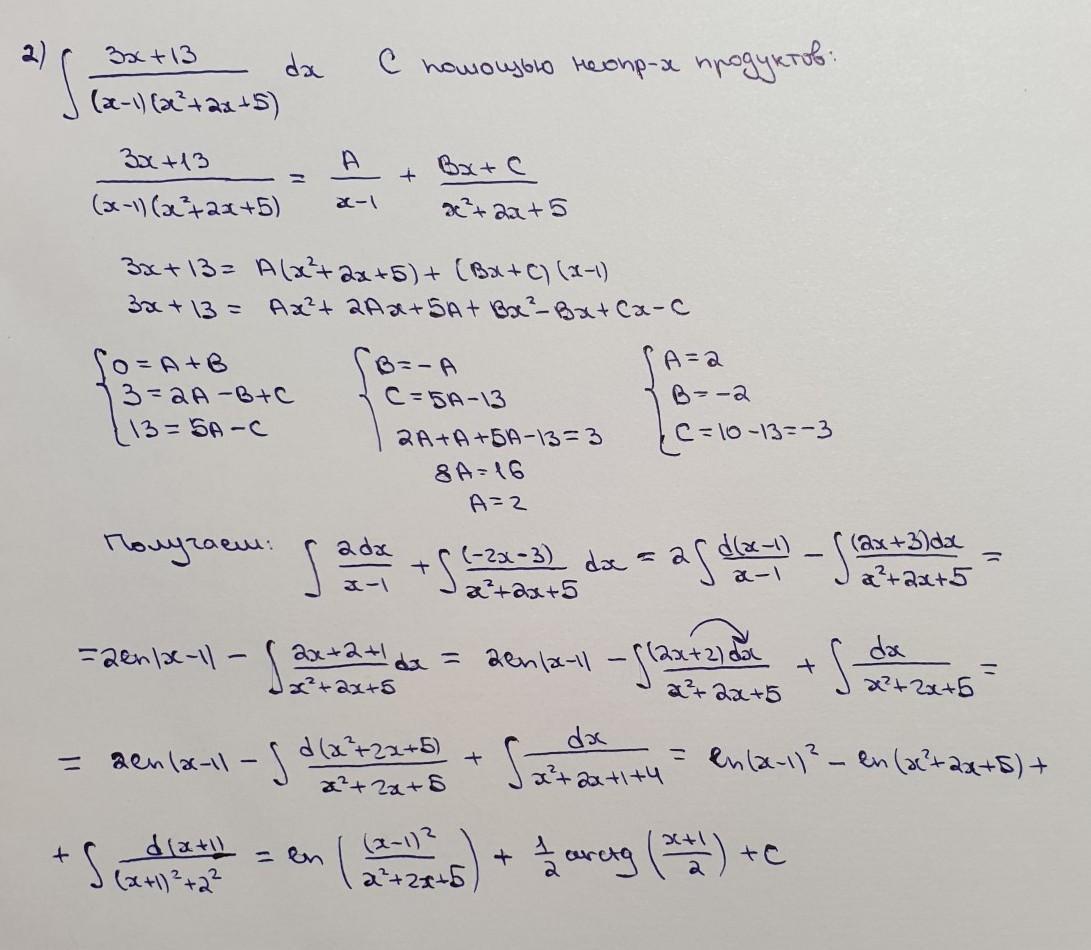 2) ∫ (3x+13)/((x-1)(x²+2x+5)) dx С помощью неопр-х продуктов:
(3x+13)/((x-1)(x²+2x+5)) = A/(x-1) + (Bx+C)/(x²+2x+5)
3x+13 = A(x²+2x+5) + (Bx+C)(x-1)
3x+13 = Ax² + 2Ax + 5A + Bx² - Bx + Cx - C
{ 0 = A+B { B = -A { A = 2
3 = 2A - B + C C = 5A - 13 B = -2
13 = 5A - C 2A + A + 5A - 13 = 3 C = 10 - 13 = -3
8A = 16
A = 2
Получаем: ∫ 2dx/(x-1) + ∫ (-2x-3)/(x²+2x+5) dx = 2∫ d(x-1)/(x-1) - ∫ (2x+3)dx/(x²+2x+5) =
= 2ln|x-1| - ∫ (2x+2+1)/(x²+2x+5) dx = 2ln|x-1| - ∫ (2x+2)dx/(x²+2x+5) + ∫ dx/(x²+2x+5) =
= 2ln|x-1| - ∫ d(x²+2x+5)/(x²+2x+5) + ∫ dx/(x²+2x+1+4) = ln(x-1)² - ln(x²+2x+5) +
+ ∫ d(x+1)/((x+1)²+2²) = ln((x-1)²/(x²+2x+5)) + 1/2 arctg((x+1)/2) + C